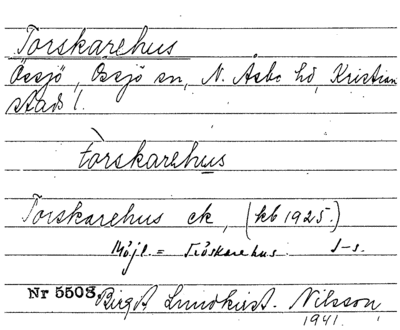 Torskarehus
Össjö, Össjö sn, N. Åsbo hd, Kristian
stads l.
tòrskarehus
Torskarehus ck, (kb 1925.)
Möjl. = Tröskarehus. J-s.
Nr 5508. Birgit Lundkvist. Nilsson
1941.